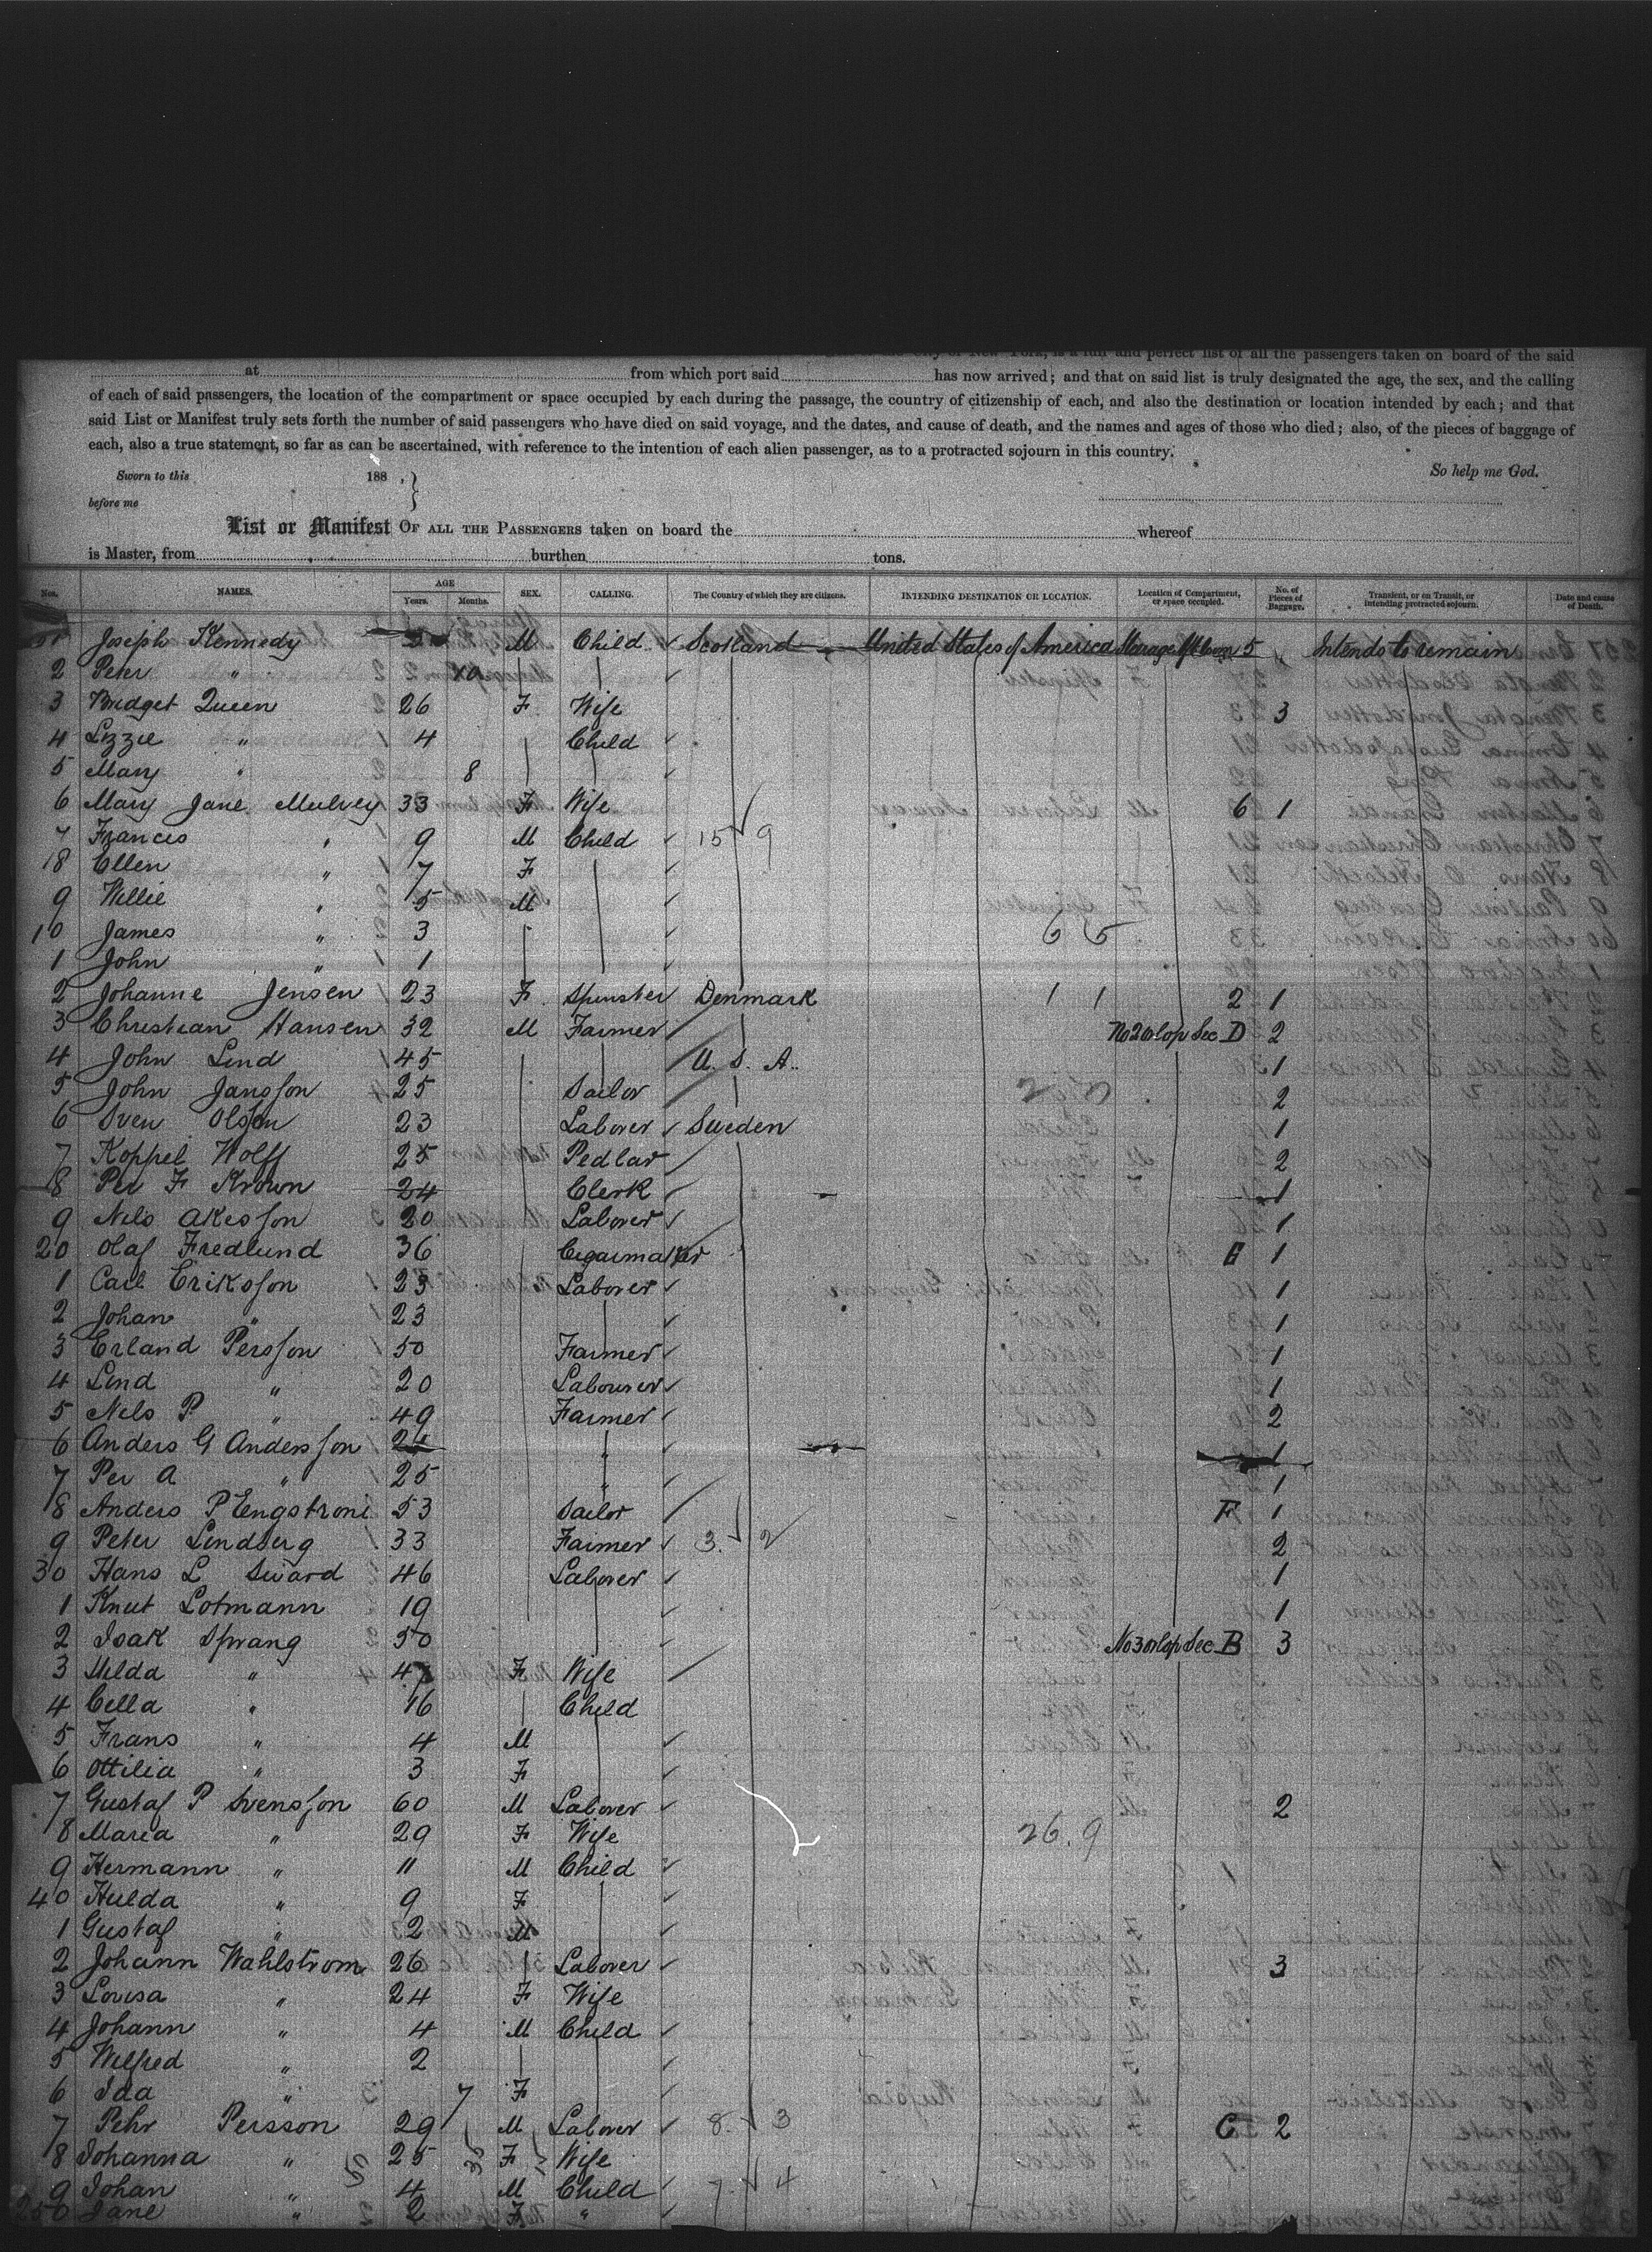 the City of New York, is a full and perfect list of all the passengers taken on board of the said
at from which port said has now arrived; and that on said list is truly designated the age, the sex, and the calling
of each of said passengers, the location of the compartment or space occupied by each during the passage, the country of citizenship of each, and also the destination or location intended by each; and that
said List or Manifest truly sets forth the number of said passengers who have died on said voyage, and the dates, and cause of death, and the names and ages of those who died; also, of the pieces of baggage of
each, also a true statement, so far as can be ascertained, with reference to the intention of each alien passenger, as to a protracted sojourn in this country.
Sworn to this 188 . } So help me God.
before me
List or Manifest OF ALL THE PASSENGERS taken on board the whereof
is Master, from burthen tons.
Nos. NAMES. AGE Years. Months. SEX. CALLING. The Country of which they are citizens. INTENDING DESTINATION OR LOCATION. Location of Compartment, or space occupied. No. of Pieces of Baggage. Transient, or on Transit, or intending protracted sojourn. Date and cause of Death.
Joseph Kennedy M Child Scotland United States of America Steerage 5 Intends to remain
2 Peter "
3 Bridget Queen 26 F Wife 3
4 Lizzie " 4 Child
5 Mary " 8
6 Mary Jane Mulvey 33 F Wife 6 1
7 Francis " 9 M Child 15 9
8 Ellen " 7 F
9 Willie " 5 M
10 James " 3 6 5
1 John " 1
2 Johanne Jensen 23 F Spinster Denmark 1 1 2 1
3 Christian Hansen 32 M Farmer No 2 Orlop Sec D 2
4 John Lind 45 U. S. A. 1
5 John Jansson 25 Sailor 2
6 Sven Olssen 23 Laborer Sweden 1
7 Koppel Wolff 25 Pedlar 2
8 Per F Krown 24 Clerk 1
9 Nels Akesson 20 Laborer 1
20 Olaf Fredlund 36 Cigarmaker G 1
1 Carl Eriksson 23 Laborer 1
2 Johan " 23 1
3 Erland Persson 50 Farmer 1
4 Lind " 20 Labourer 1
5 Nels P " 49 Farmer 2
6 Anders G Andersson " 1
7 Per A " 25 " 1
8 Anders P Engstrom 53 Sailor F 1
9 Peter Lindberg 33 Farmer 3. 2 2
30 Hans L Sward 46 Laborer 1
1 Knut Lotmann 19 1
2 Isak Sprang 50 No 3 Orlop Sec B 3
3 Hilda " 47 F Wife
4 Cella " 16 Child
5 Frans " 4 M
6 Ottilia " 3 F
7 Gustaf P Svensson 60 M Laborer 2
8 Maria " 29 F Wife 26. 9
9 Hermann " 11 M Child
40 Hulda " 9 F
1 Gustaf " 2 M
2 Johann Wahlstrom 26 Laborer 3
3 Lovisa " 24 F Wife
4 Johann " 4 M Child
5 Wilfred " 2
6 Ida " 7 F
7 Pehr Persson 29 M Laborer 8. 3 C 2
8 Johanna " 25 F Wife
9 Johan " 4 M Child 7. 4
250 Jane " 2 F "